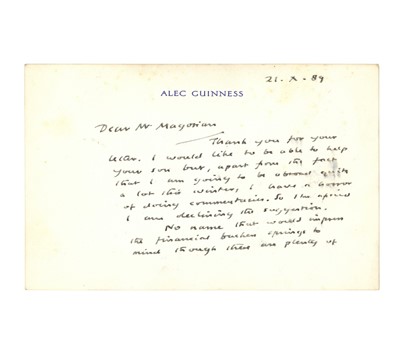 21. X. 89
ALEC GUINNESS
Dear Mr
Thank you for your
letter. I would like to be able to help
your son but, apart from the fact
that I am going to be abroad quite
a lot this winter, I have a horror
of doing commentaries. So I'm afraid
I am declining the suggestion.
No name that would impress
the financial backers springs to
mind though there are plenty of